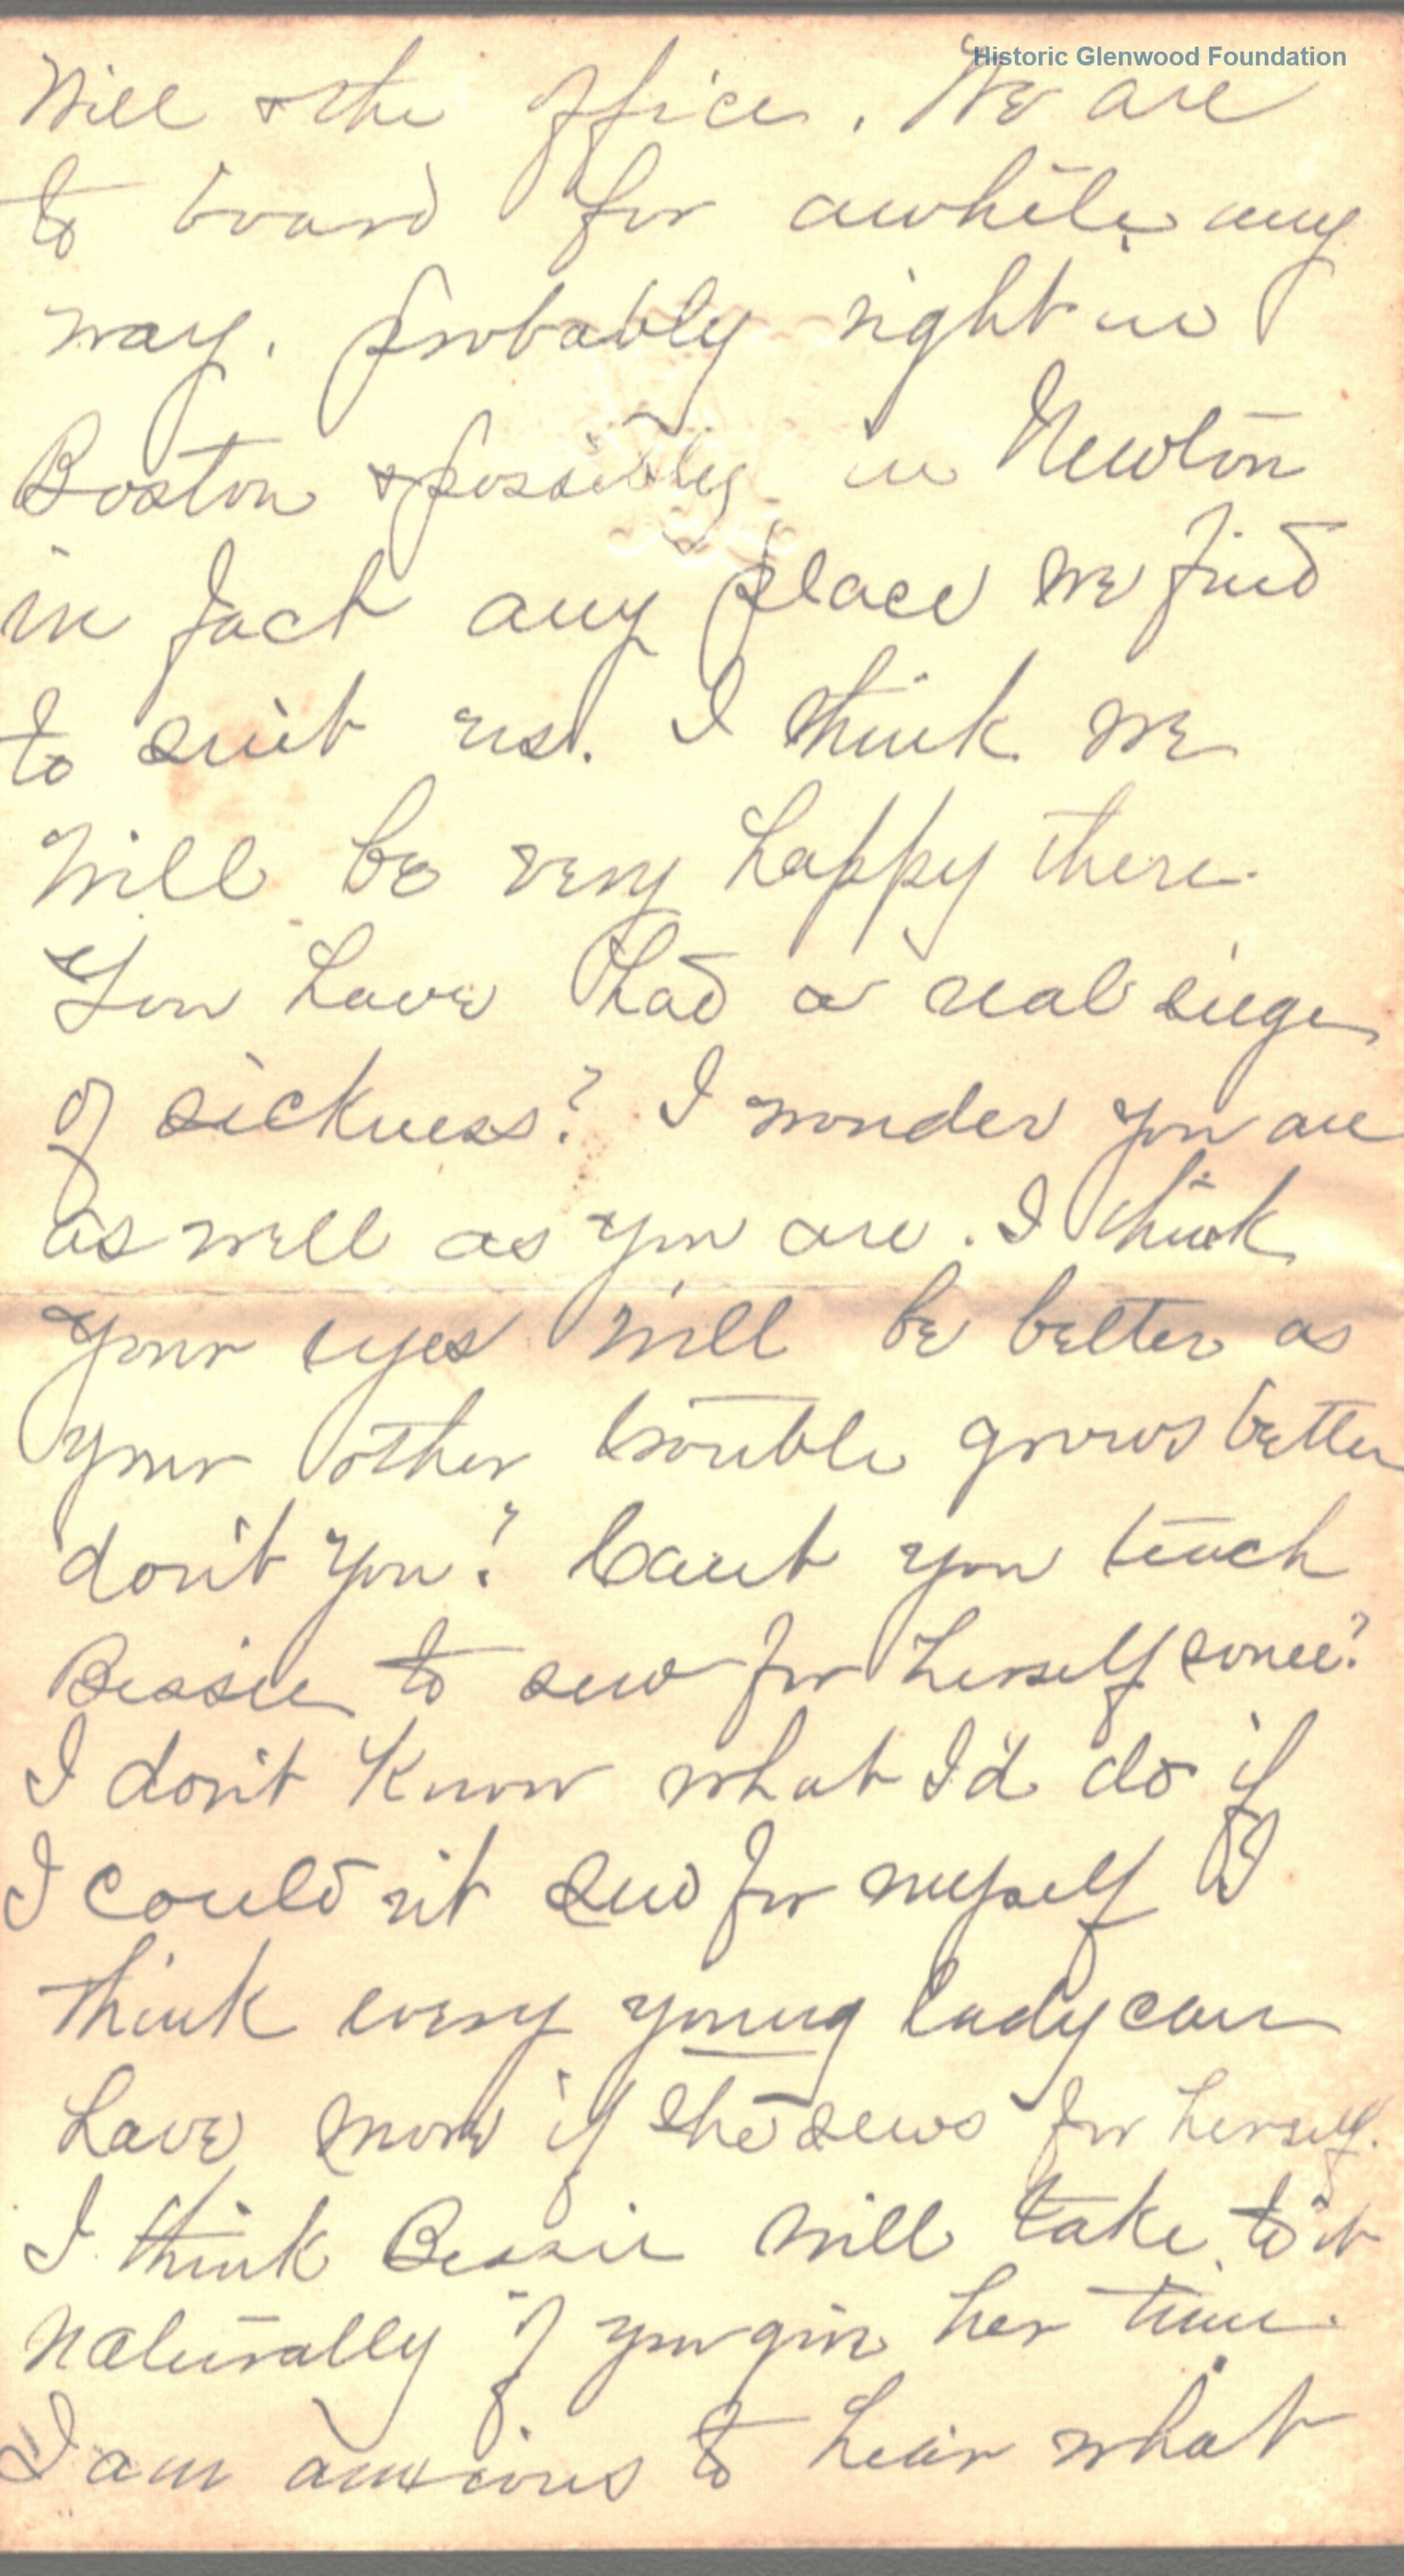 Historic Glenwood Foundation
Will & the office. We are
to board for awhile any
way. probably right in
Boston & possibly in Newton
in fact any place we find
to suit us. I think we
will be very happy there.
You have had a real siege
of sickness? I wonder you are
as well as you are. I think
your eyes will be better as
your other trouble grows better
don't you? Can't you teach
Bessie to sew for herself some?
I don't know what I'd do if
I could n't sew for myself I
think every young lady can
have more if she sews for herself.
I think Bessie will take to it
naturally if you give her time.
I am anxious to hear what